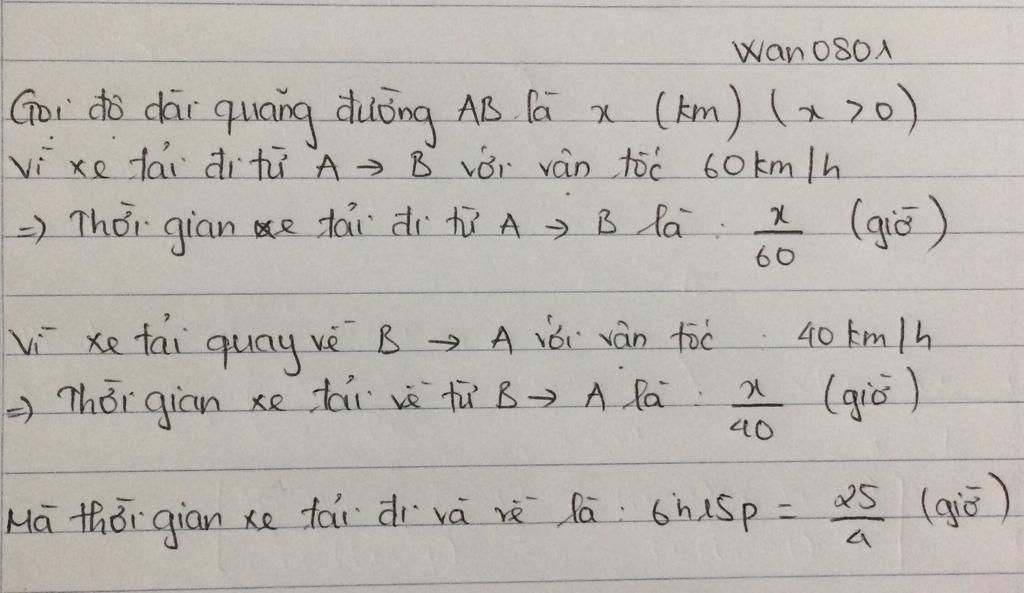 Wan0801
Gọi độ dài quãng đường AB là x (km) (x > 0)
Vì xe tải đi từ A → B với vận tốc 60 km/h
=> Thời gian xe tải đi từ A → B là : x/60 (giờ)
Vì xe tải quay về B → A với vận tốc : 40 km/h
=> Thời gian xe tải về từ B → A là : x/40 (giờ)
Mà thời gian xe tải đi và về là : 6h15p = 25/4 (giờ)